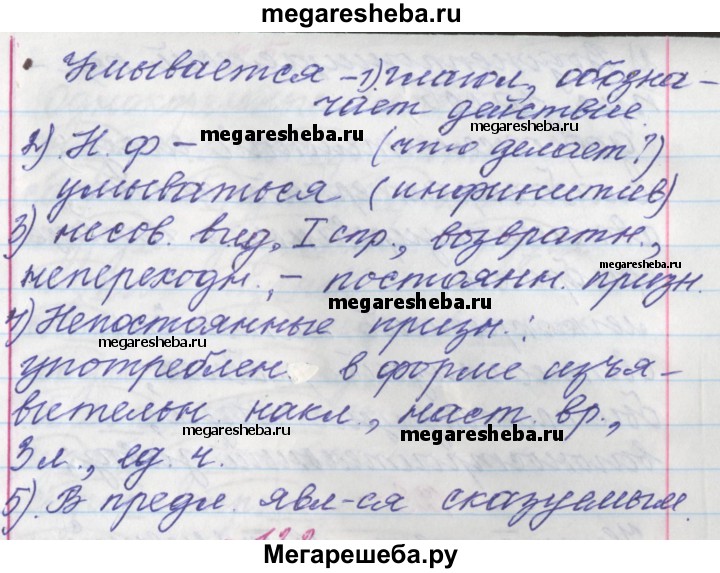 megaresheba.ru
Умывается – 1) глагол, обозна-
чает действие.
megaresheba.ru
megaresheba.ru
2) Н. ф – (что делает?)
умываться (инфинитив)
3) несов. вид, I спр., возвратн.,
megaresheba.ru
непереходн., – постоянн. призн.
megaresheba.ru
4) Непостоянные призн.:
megaresheba.ru
употреблен. в форме изъя-
вительн. накл., наст. вр.,
megaresheba.ru
megaresheba.ru
3 л., ед. ч.
5). В предл. явл-ся сказуемым.
Мегарешеба.ру